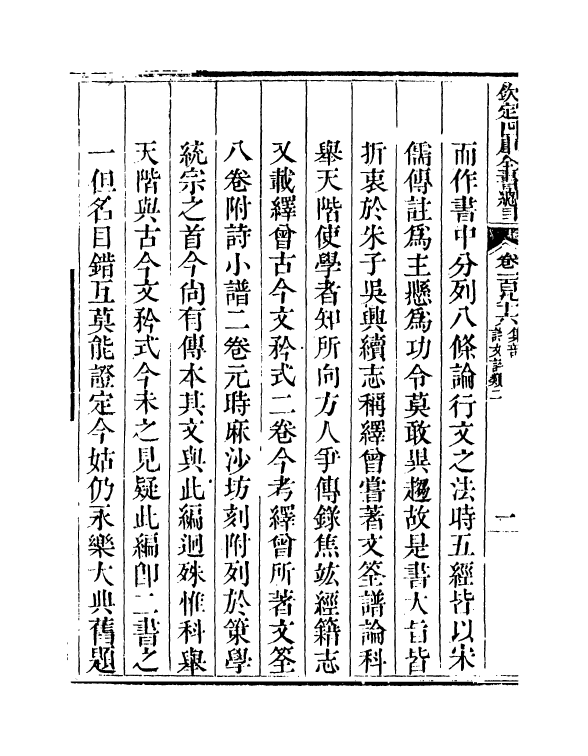 欽定四庫全書總目 卷一百九十六 集部 詩文評類二 一
而作書中分列八條論行文之法時五經皆以宋
儒傳註為主懸為功令莫敢異趨故是書大旨皆
折衷於朱子吳興續志稱繹曾嘗著文筌譜論科
舉天階使學者知所向方人爭傳錄焦竑經籍志
又載繹曾古今文矜式二卷今考繹曾所著文筌
八卷附詩小譜二卷元時麻沙坊刻附列於策學
統宗之首今尙有傳本其文與此編迥殊惟科舉
天階與古今文矜式今未之見疑此編卽二書之
一但名目錯互莫能證定今姑仍永樂大典舊題